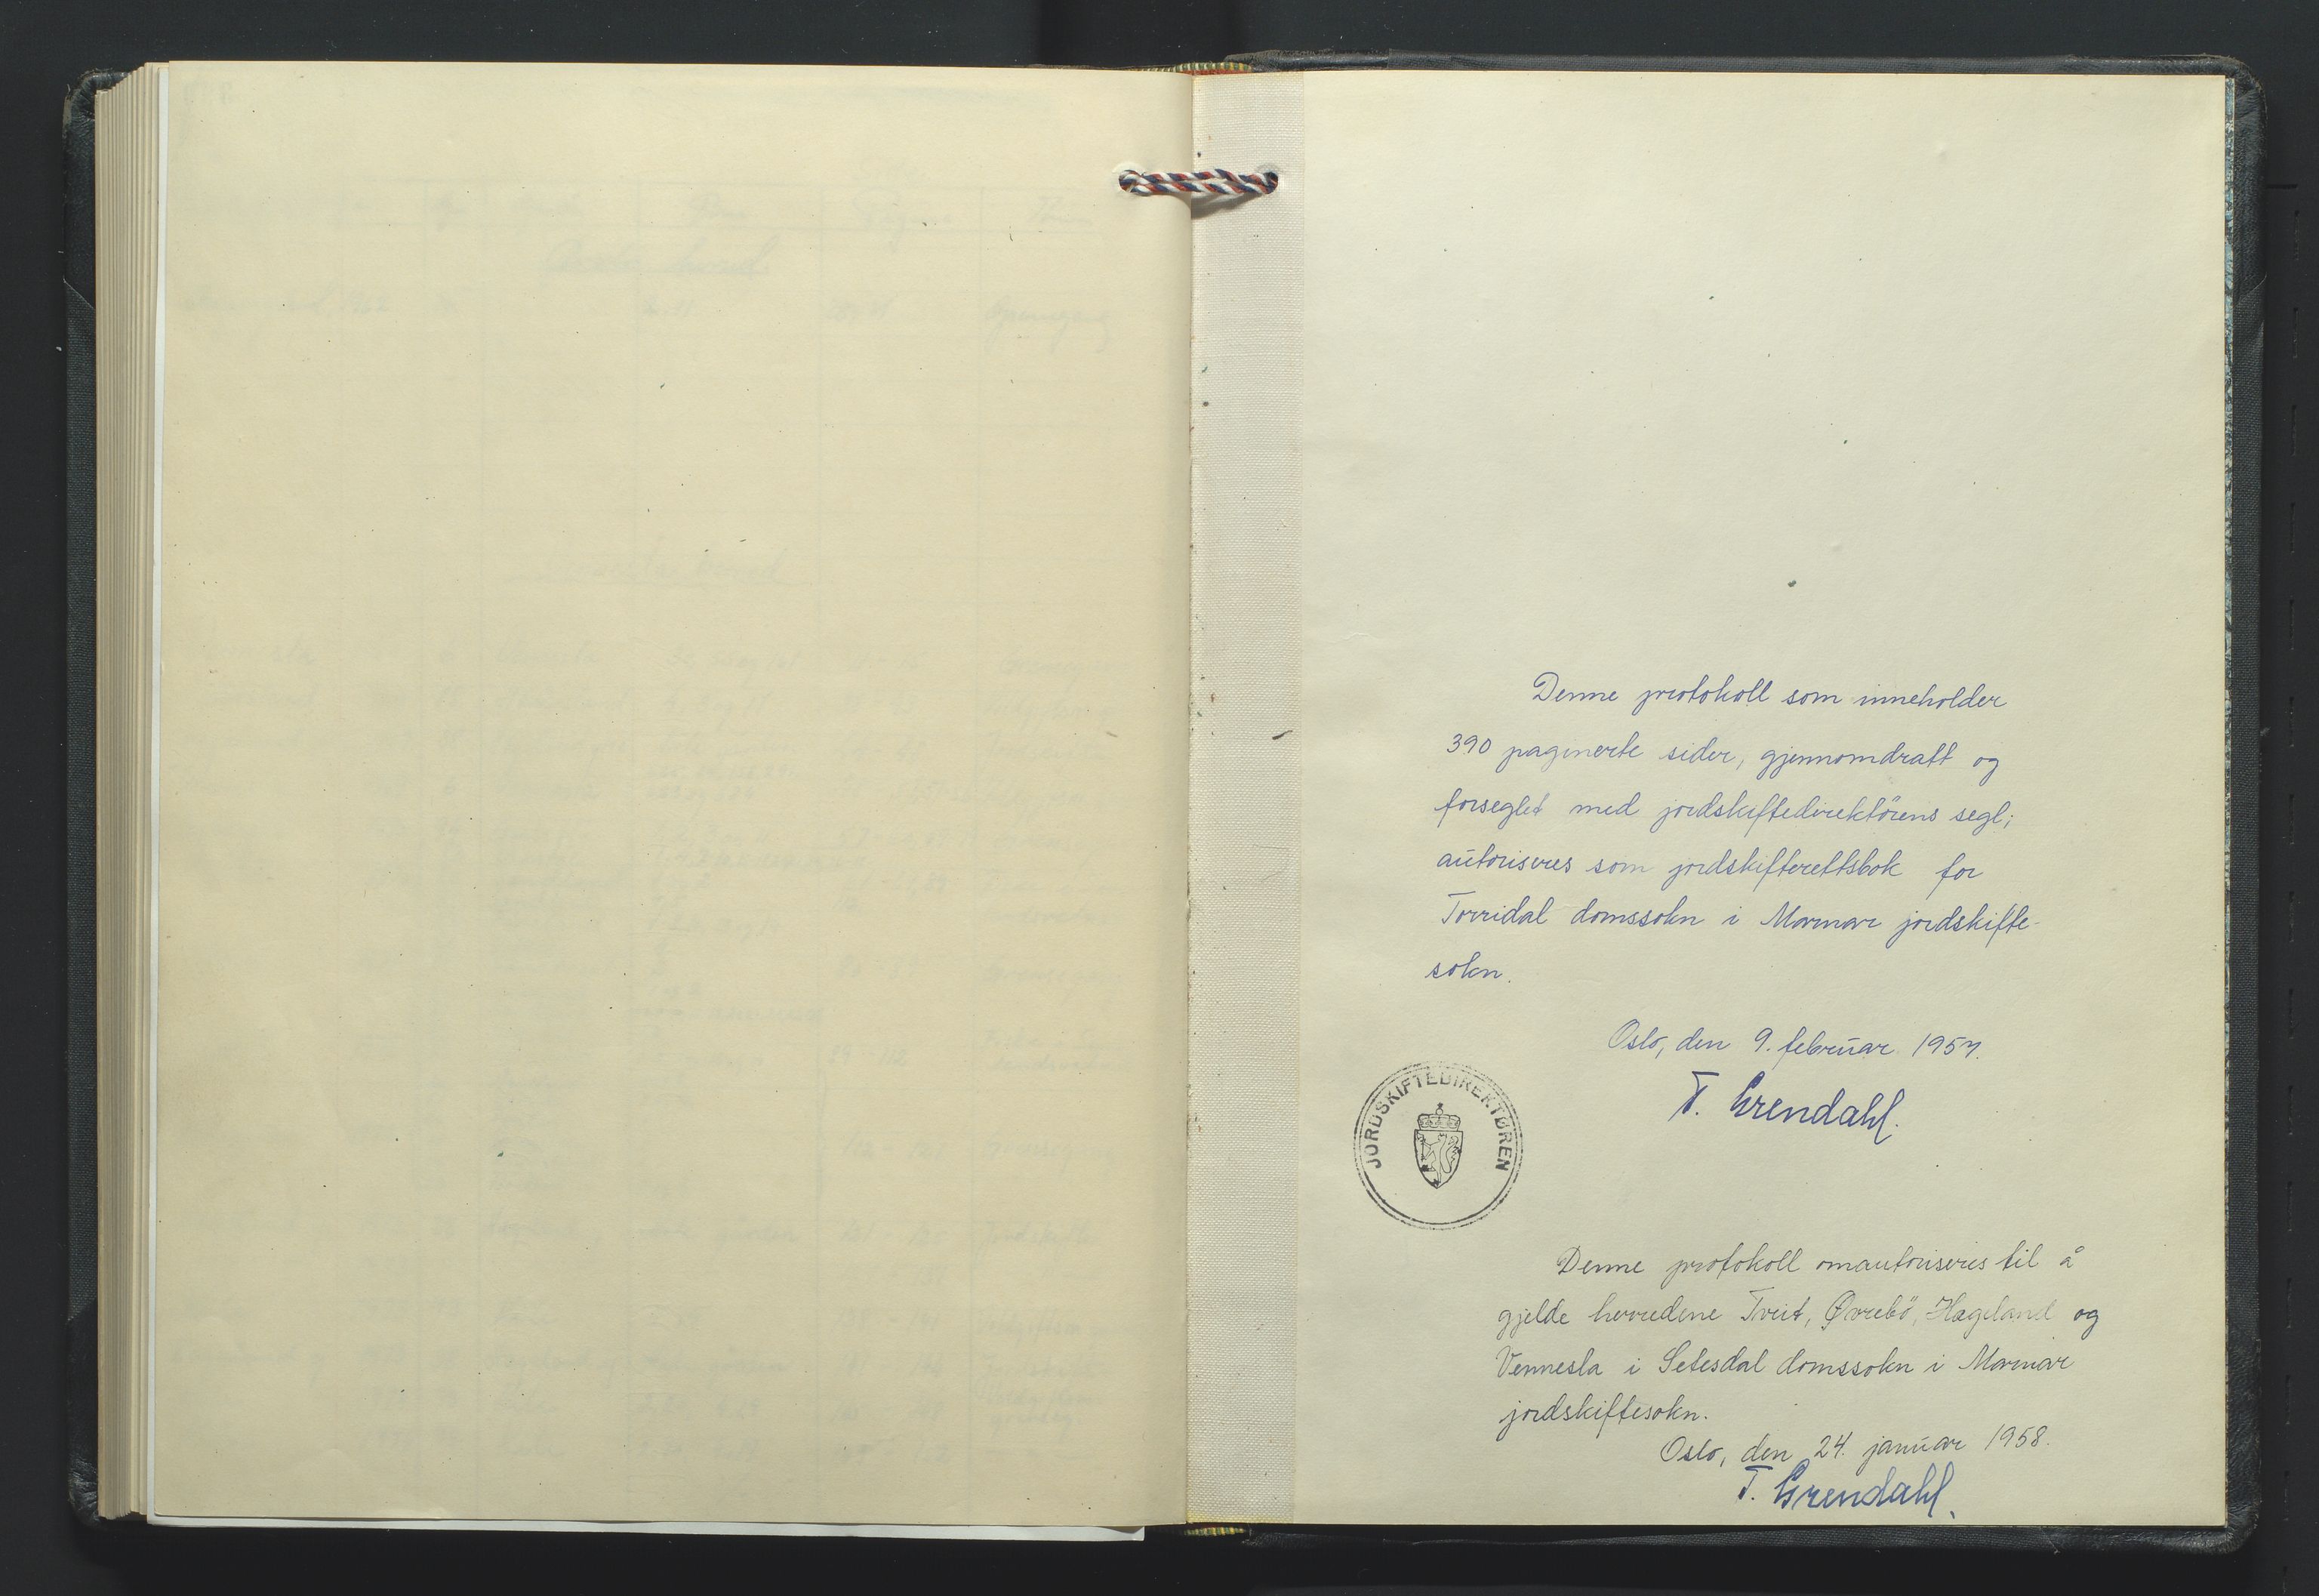 Denne protokoll som inneholder
390 paginerte sider, gjennomdratt og
forseglet med jordskiftedirektörens segl;
autoriseres som jordskifterettsbok for
Torridal domssokn i Marnar jordskifte-
sokn.
Oslo, den 9. februar 1957.
T. Grendahl.
JORDSKIFTEDIREKTØREN
Denne protokoll omautoriseres til å
gjelde herredene Tveit, Øvrebö, Hægeland og
Vennesla i Setesdal domssokn i Marnar
jordskiftesokn.
Oslo, den 24. januar 1958.
T. Grendahl.